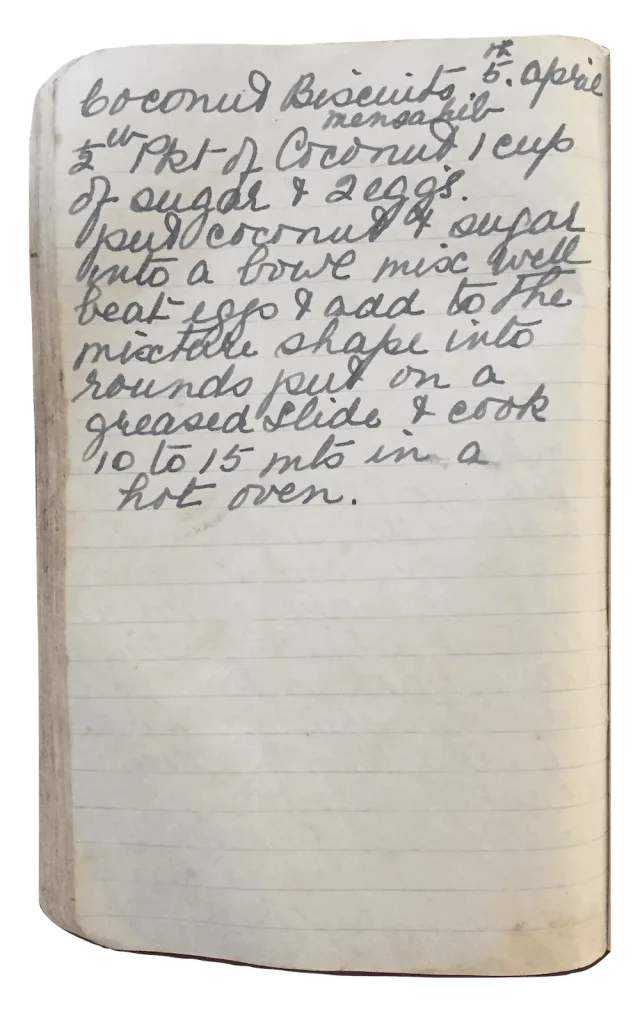 Coconut Biscuits. 5.th april
½ lb Pkt of Coconut 1 cup
of sugar & 2 eggs.
put coconut & sugar
into a bowl mix well
beat eggs & add to the
mixture shape into
rounds put on a
greased slide & cook
10 to 15 mts in a
hot oven.